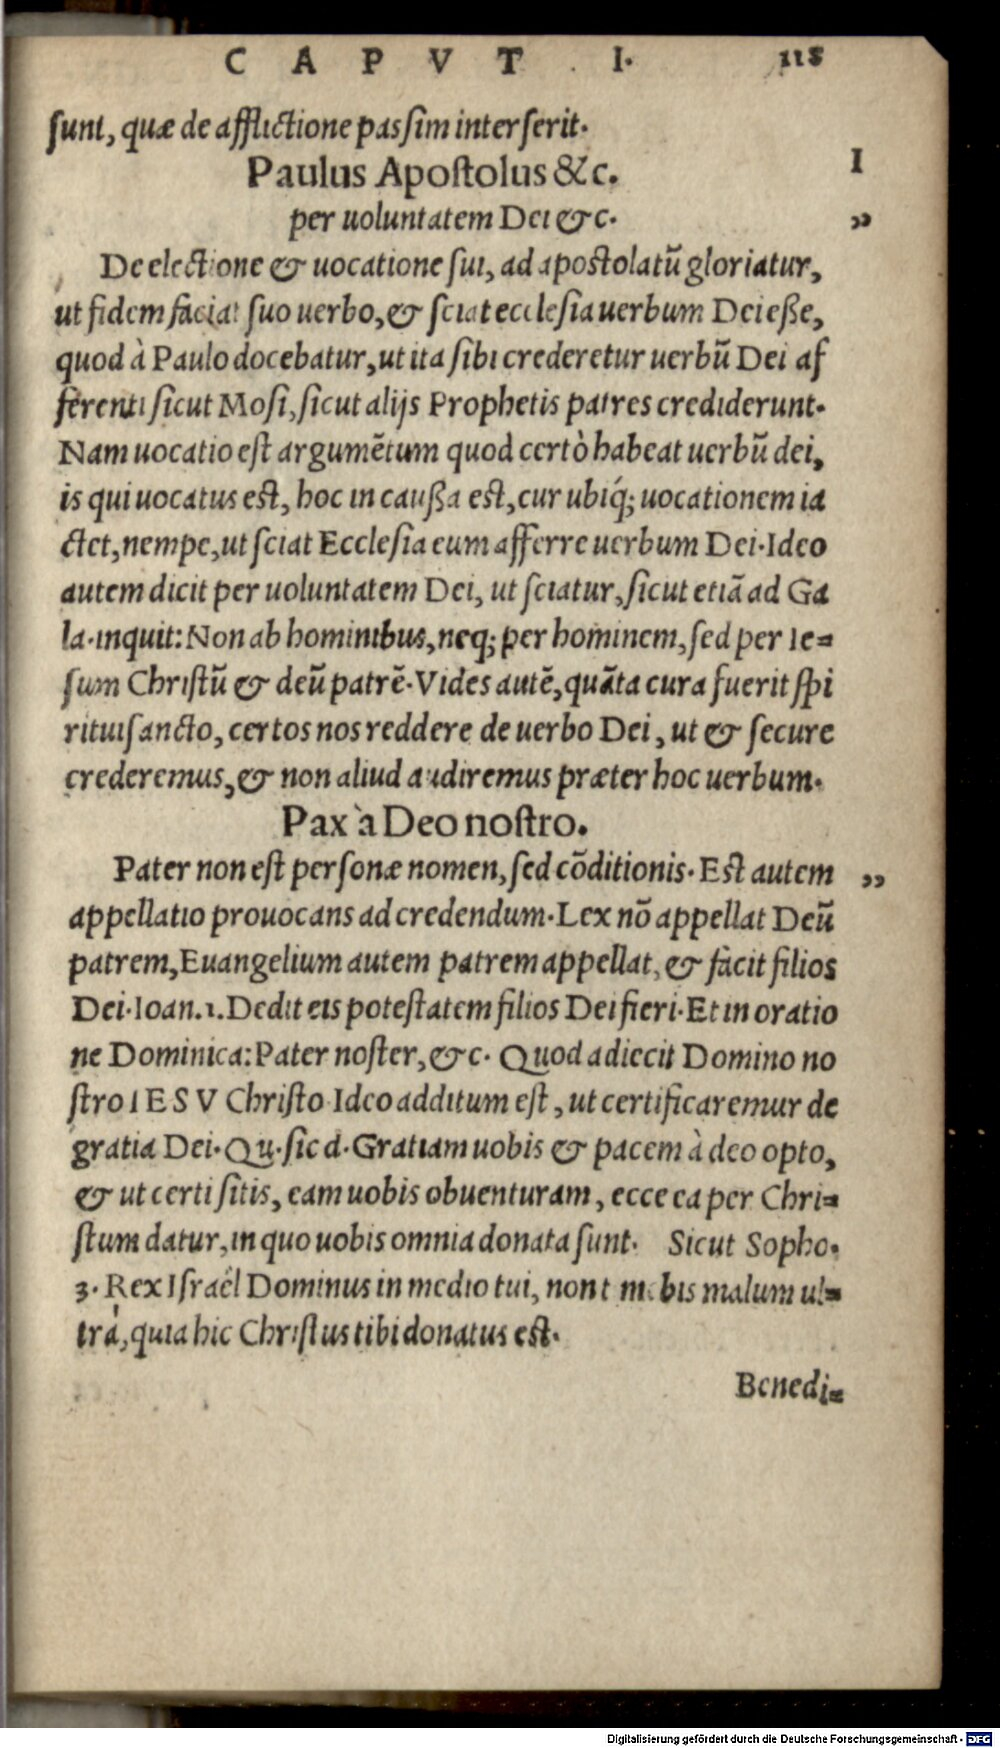 CAPVT I. 118
sunt, quæ de afflictione passim interserit.
Paulus Apostolus &c. I
per uoluntatem Dei &c. ”
De electione & uocatione sui, ad apostolatū gloriatur,
ut fidem faciat suo uerbo, & sciat ecclesia uerbum Dei eße,
quod à Paulo docebatur, ut ita sibi crederetur uerbū Dei af
ferenti sicut Mosi, sicut alijs Prophetis patres crediderunt.
Nam uocatio est argumētum quod certò habeat uerbū dei,
is qui uocatus est, hoc in caußa est, cur ubiq́; uocationem ia
ctet, nempe, ut sciat Ecclesia eum afferre uerbum Dei. Ideo
autem dicit per uoluntatem Dei, ut sciatur, sicut etiā ad Ga
la. inquit: Non ab hominibus, neq; per hominem, sed per Ie=
sum Christū & deū patrē. Vides autē, quāta cura fuerit spi
rituisancto, certos nos reddere de uerbo Dei, ut & secure
crederemus, & non aliud audiremus præter hoc uerbum.
Pax à Deo nostro.
Pater non est personæ nomen, sed cōditionis. Est autem ”
appellatio prouocans ad credendum. Lex nō appellat Deū
patrem, Euangelium autem patrem appellat, & facit filios
Dei. Ioan. 1. Dedit eis potestatem filios Dei fieri. Et in oratio
ne Dominica: Pater noster, &c. Quod adiecit Domino no
stro IESV Christo Ideo additum est, ut certificaremur de
gratia Dei. Qu. sic d. Gratiam uobis & pacem à deo opto,
& ut certi sitis, eam uobis obuenturam, ecce ea per Chri=
stum datur, in quo uobis omnia donata sunt. Sicut Sopho.
3. Rex Israël Dominus in medio tui, non malum ul=
trà, quia hic Christus tibi donatus est.
Benedi=
Digitalisierung gefördert durch die Deutsche Forschungsgemeinschaft - DFG